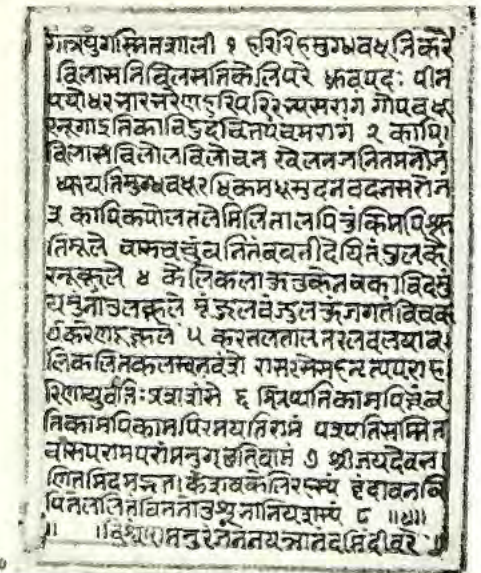 गंडयुगस्मितशाली १ हरिरिहमुग्धवधूनिकरे
विलासनिविलसतिकेलिपरे ध्रुवपदः पीन
पयोधरभारभरेणहरिंपरिरभ्यसरागं गोपवधू
रनुगाअतिकाचिदुदंचितपंचमरागं २ कापि
विलासविलोलविलोचनखेलनजनितमनोजं
ध्यायतिमुग्धवधूरधिकंमधुसूदनवदनसरोजं
३ कापिकपोलतलेमिलितालपितुंकिमपिश्रु
तिमूले चारुचुचुंबनितंबवतीदयितंपुलकै
रनुकूले ४ केलिकलाकुतुकेनचकाचिदमुं
यमुनाजलकूले मंजुलवंजुलकुंजगतंविचक
र्षकरेणदुकूले ५ करतलतालतरलवलयाव
लिकलितकलस्वनवंशे रासरसेसहनृत्यपराह
रिणायुवतिःप्रशशंसे ६ श्लिष्यतिकामपिचुंब
तिकामपिकामपिरमयतिरामां पश्यतिसस्मित
चारुपरामपरामनुगछतिवामां ७ श्रीजयदेवभ
णितमिदमद्भुतकेशवकेलिरहस्यं वृंदावनवि
पिनेललितंवितनोतुशुभानियशस्यं ८ ॥छ॥
॥ ॥विश्वेषामनुरंजनेनजनयन्नानंदमिंदीवर